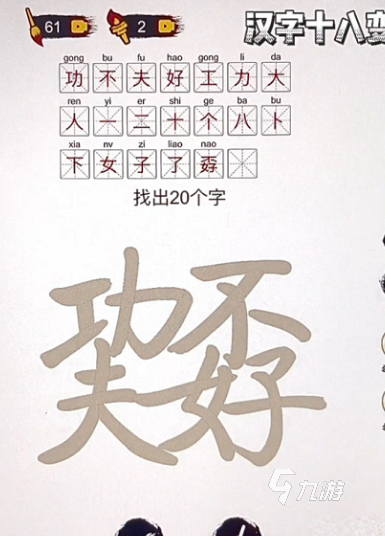 61 2 汉字十八变
gong bu fu hao gong li da
功 不 夫 好 工 力 大
ren yi er shi ge ba bu
人 一 二 十 个 八 卜
xia nv zi liao nao
下 女 子 了 孬
找出20个字
功不
夫好
九游